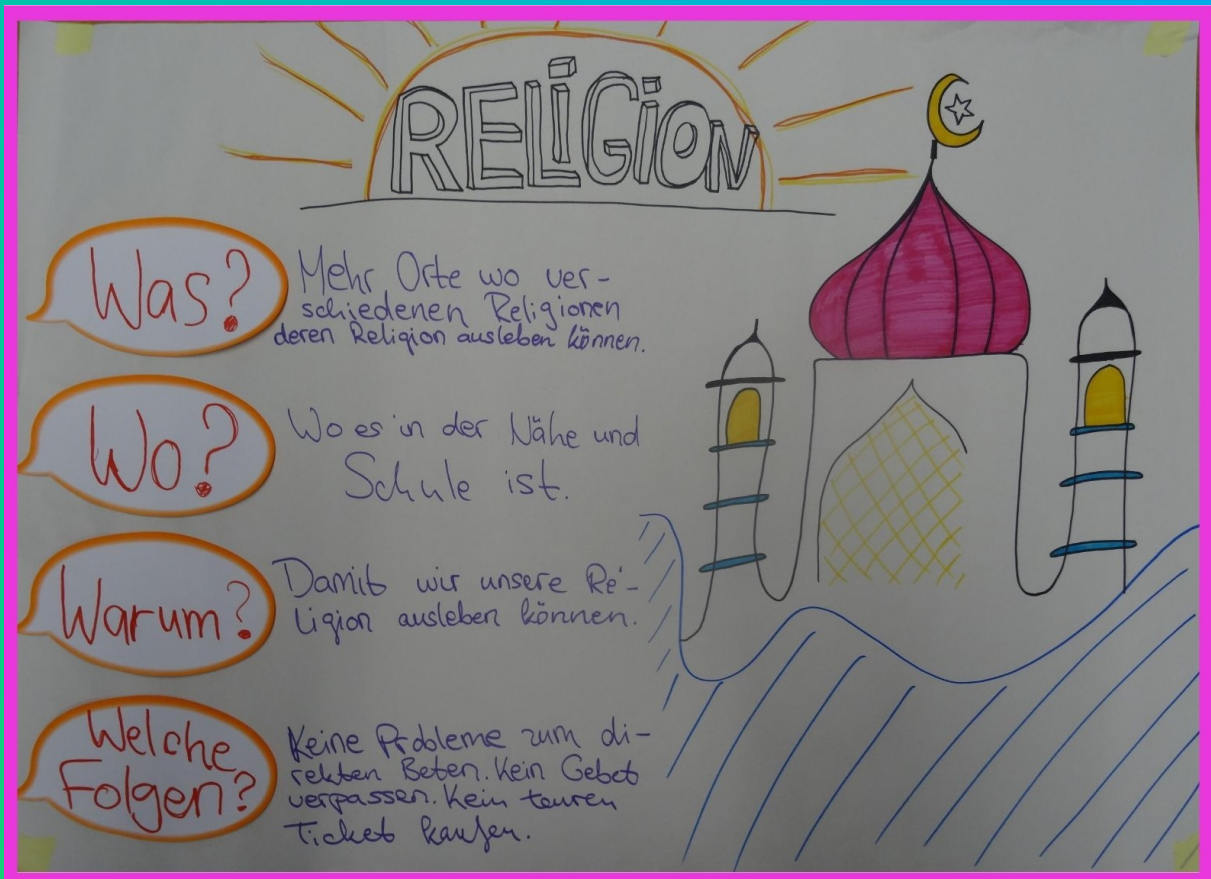 RELiGiON
Was?
Mehr Orte wo ver-
schiedenen Religionen
deren Religion ausleben können.
Wo?
Wo es in der Nähe und
Schule ist.
Warum?
Damit wir unsere Re-
ligion ausleben können.
Welche
Folgen?
Keine Probleme zum di-
rekten Beten. Kein Gebet
verpassen. Kein teuren
Ticket kaufen.